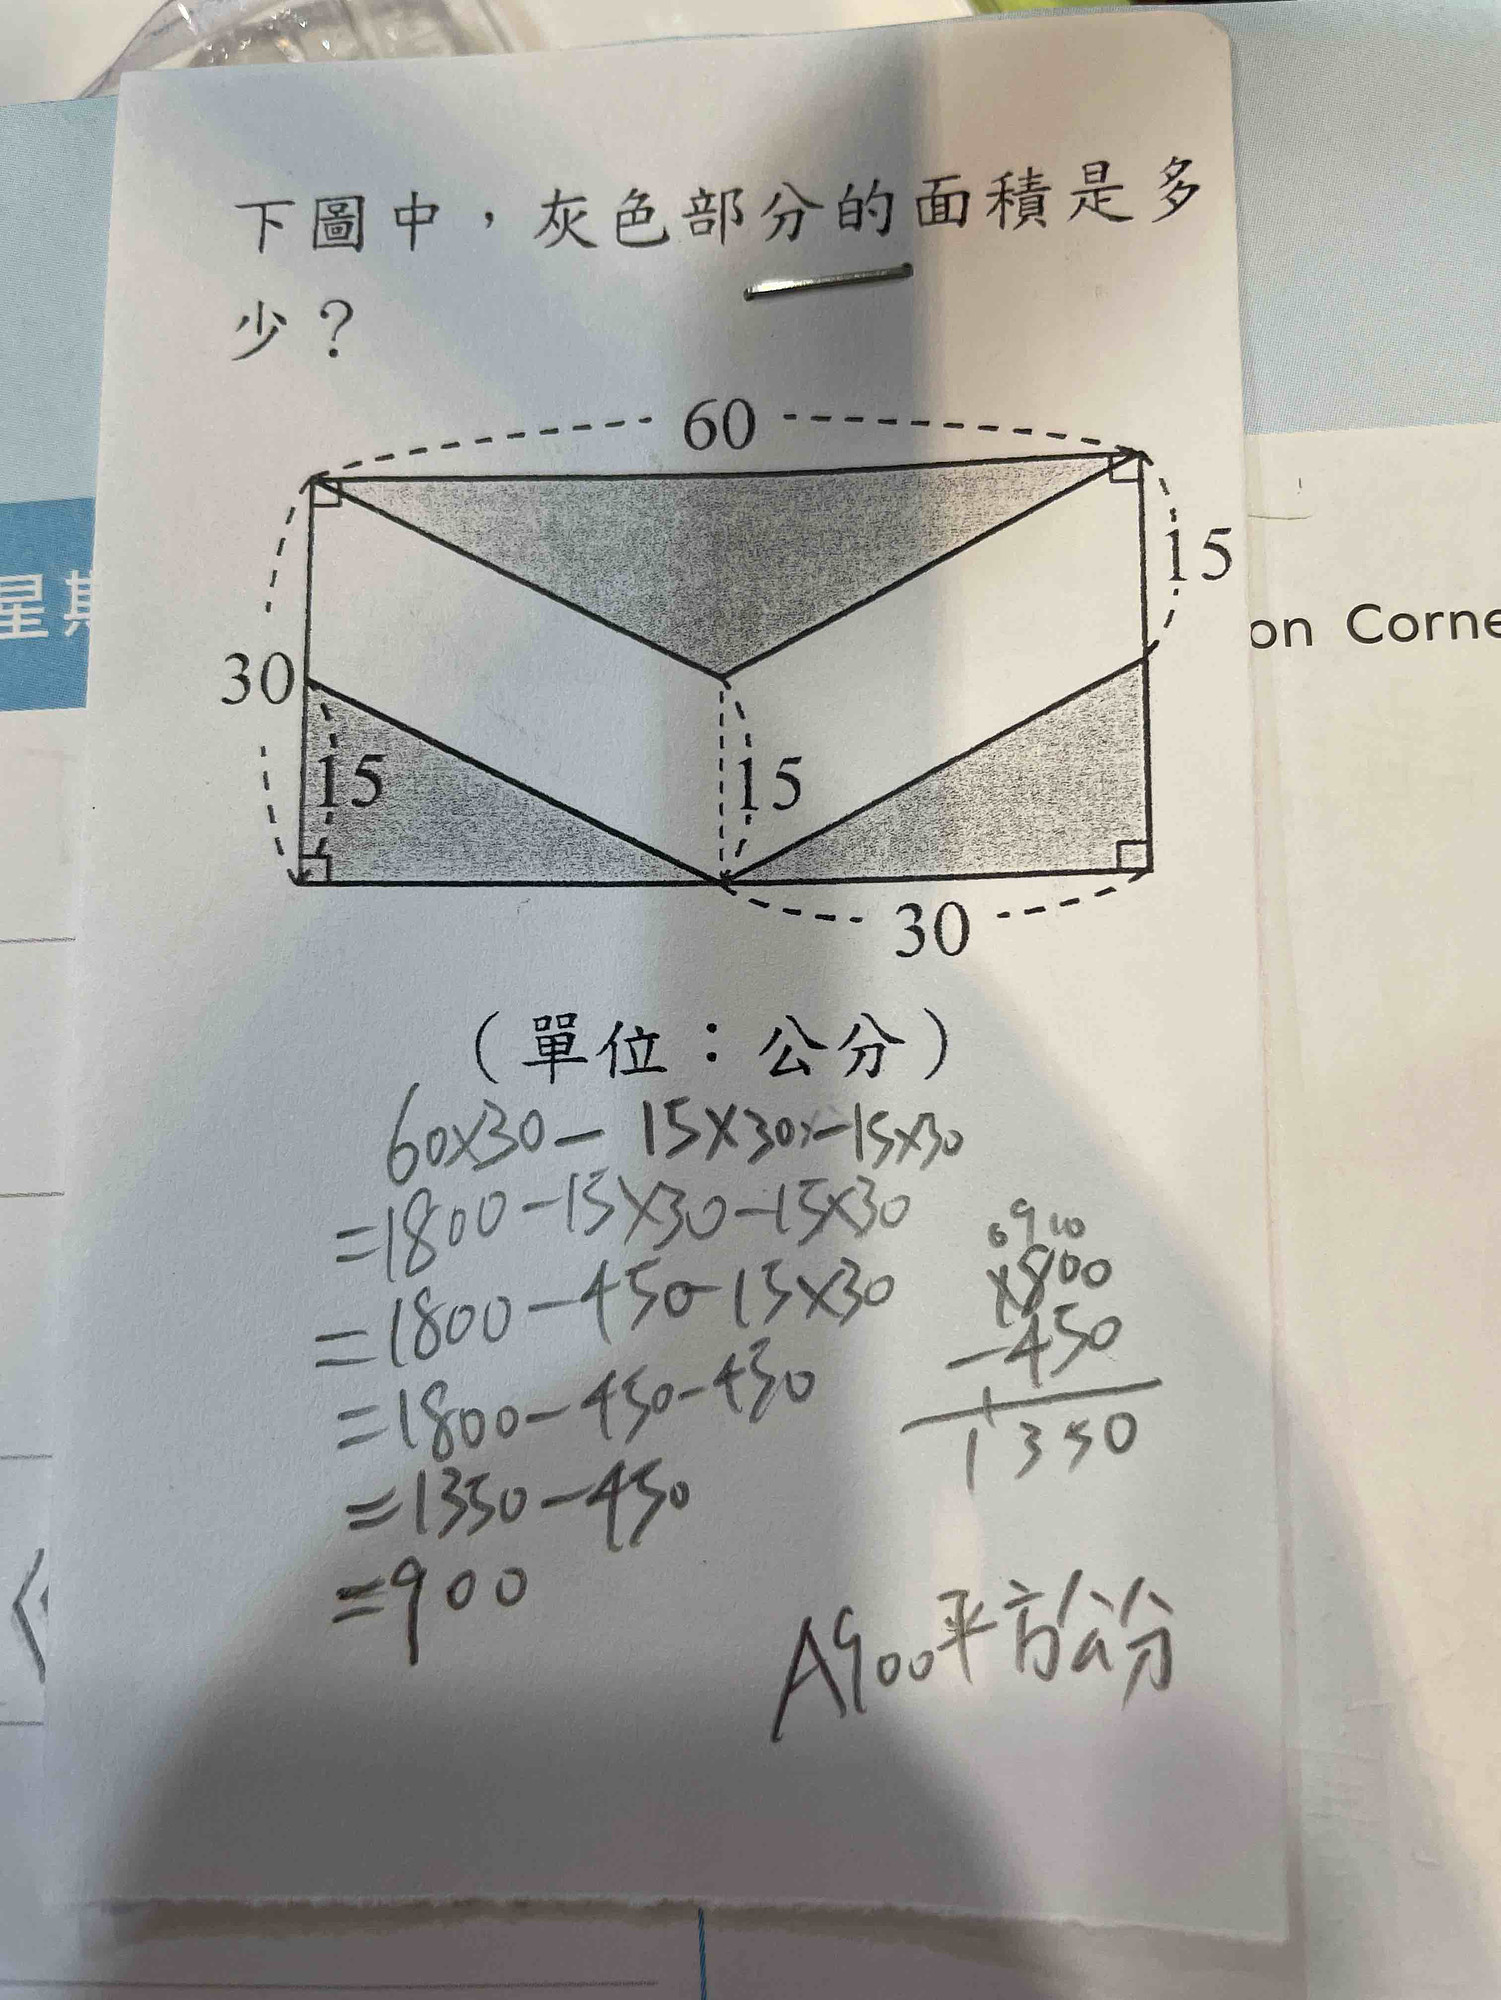 下圖中，灰色部分的面積是多
少？
60
15
星期
on Corne
30
15
15
30
（單位：公分）
60×30- 15×30-15×30
=1800-15×30-15×30
6 9 10
=1800-450-15×30
1800
-450
=1800-450-450
1350
=1350-450
=900
A900平方公分